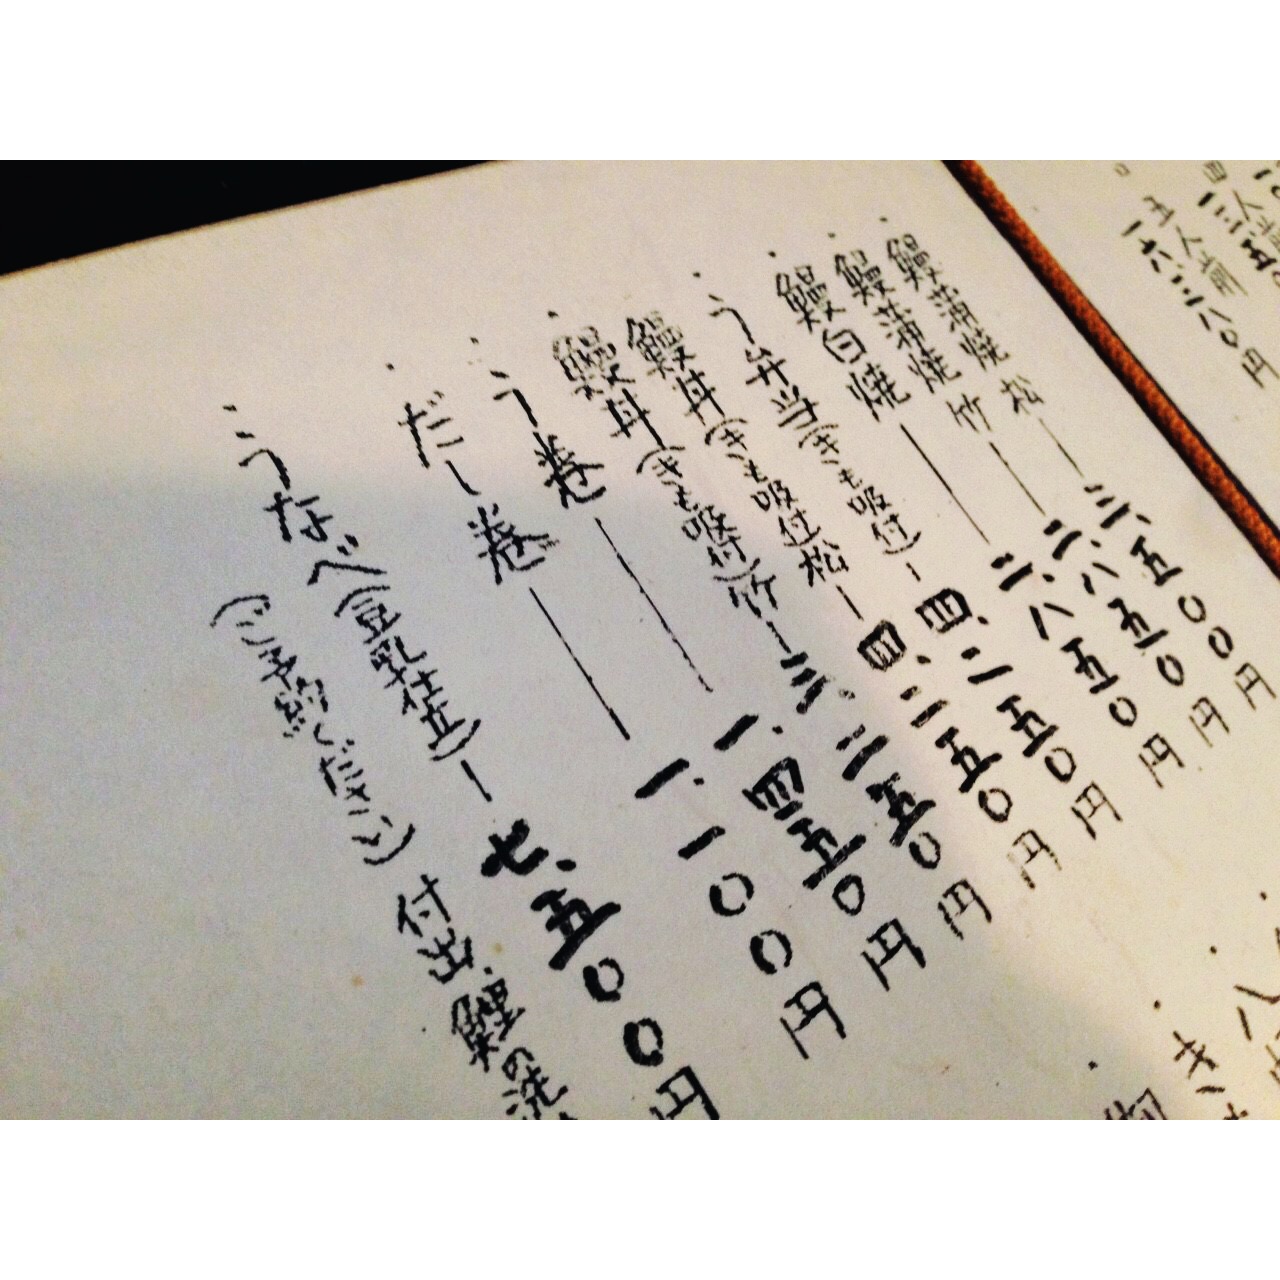 五人前
・鰻蒲焼 松―三、五〇〇円
・鰻蒲焼 竹―二、八五〇円
・鰻白焼―二、八五〇円
・う弁当(きも吸付)―四、二五〇円
・鰻丼(きも吸付)松―四、二五〇円
・鰻丼(きも吸付)竹―三、二五〇円
・う巻―一、四五〇円
・だし巻―一、一〇〇円
・うなべ(豆乳仕立)―七、五〇〇円
(ご予約ください)付出、鯉の洗